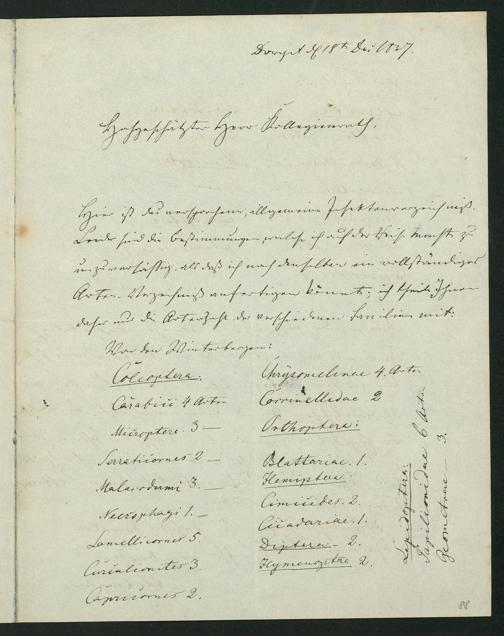 Dorpat d 18ten Dec 1837.
Hochgeschätzter Herr Kollegienrath,
Hier ist das versprochene, allgemeine Insektenverzeichniß.
Leider sind die Bestimmungen, welche ich auf der Reise machte, zu
unzuverlässig, als daß ich nach denselben ein vollständiges
Arten-Verzeichniß anfertigen könnte; ich theile Ihnen
daher nur die Artenzahl der verschiedenen Familien mit:
Von den Winterbergen:
Coleoptera:
Carabici 4 Arten
Microptera 3 —
Serricornes 2 —
Malacodermi 3. —
Necrophagi 1. —
Lamellicornes 5.
Curculionites 3
Capricornes 2.
Chrysomelinae 4. Arten
Coccinellidae 2
Orthoptera:
Blattariae. 1.
Hemiptera
Cimicides. 2.
Cicadariae. 1.
Diptera — 2.
Hymenoptera 2.
Lepidoptera:
Papilionidae 6 Arten
Geometrae — 3.
88